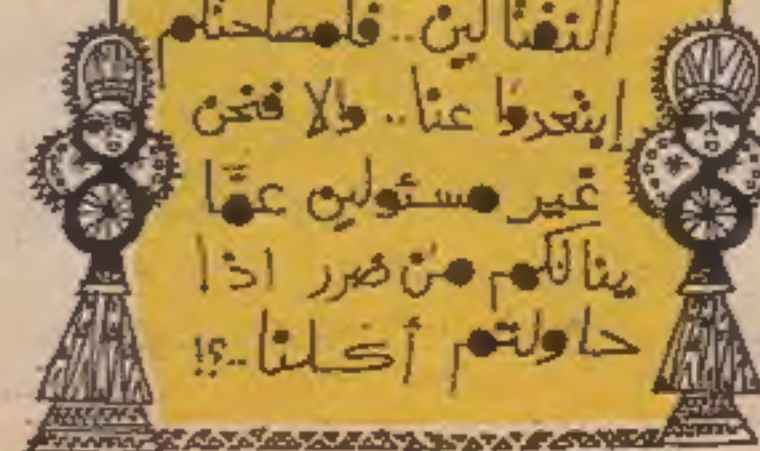 النفتالين.. فلمصلحتكم
إبتعدوا عنا.. وإلا فنحن
غير مسئولين عمَّا
ينالكم من ضرر اذا
حاولتم أكلنا..؟!